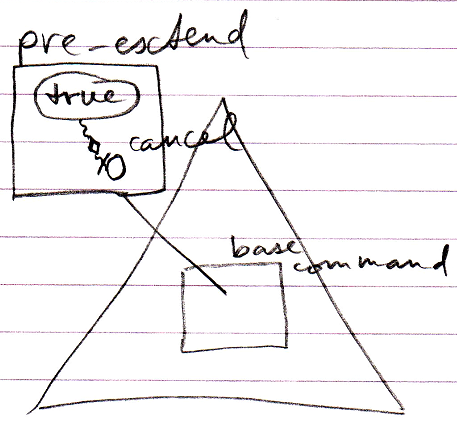 pre-exctend
true
cancel
base
command